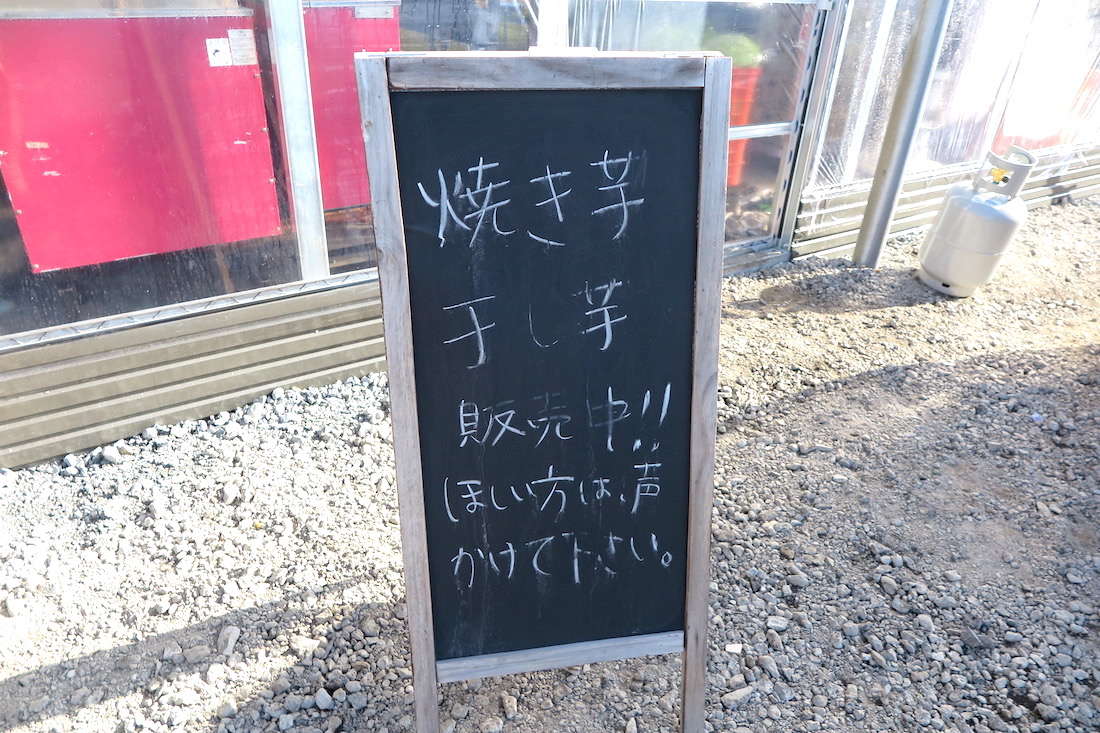 焼き芋
干し芋
販売中!!
ほしい方は、声
かけて下さい。